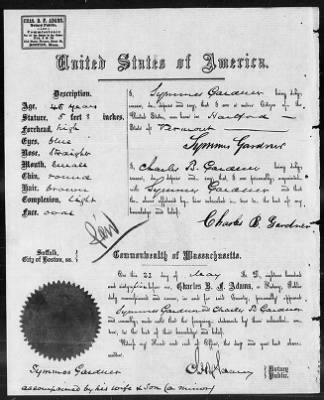 CHAS. B. F. ADAMS,
Notary Public,
Commissioner
BOSTON, Mass.
United States of America.
Description.
Age, 48 years
Stature, 5 feet 8 inches.
Forehead, high
Eyes, blue
Nose, straight
Mouth, small
Chin, round
Hair, brown
Complexion, light
Face, oval
I, Symmes Gardner being duly
sworn, do depose and say, that I am a native Citizen of the
United States, was born in Hartford
State of Vermont
Symmes Gardner
I, Charles B. Gardner being duly
sworn, depose and say, that I am personally acquainted
with Symmes Gardner and that
the above affidavit by him subscribed is true to the best of my
knowledge and belief.
Charles B. Gardner
Suffolk,
City of Boston, ss.
Commonwealth of Massachusetts.
On this 22 day of May A. D. eighteen hundred
and eighty before me, Charles B. F. Adams, a Notary Public
duly commissioned and sworn, in and for said County, personally appeared,
Symmes Gardner & Charles B. Gardner
and severally made oath that the foregoing statement by them subscribed
is true, to the best of their knowledge and belief.
Witness my Hand and Seal of Office, the day and year last above
written.
Notary
Public.
Symmes Gardner
accompanied by his wife & son (a minor)